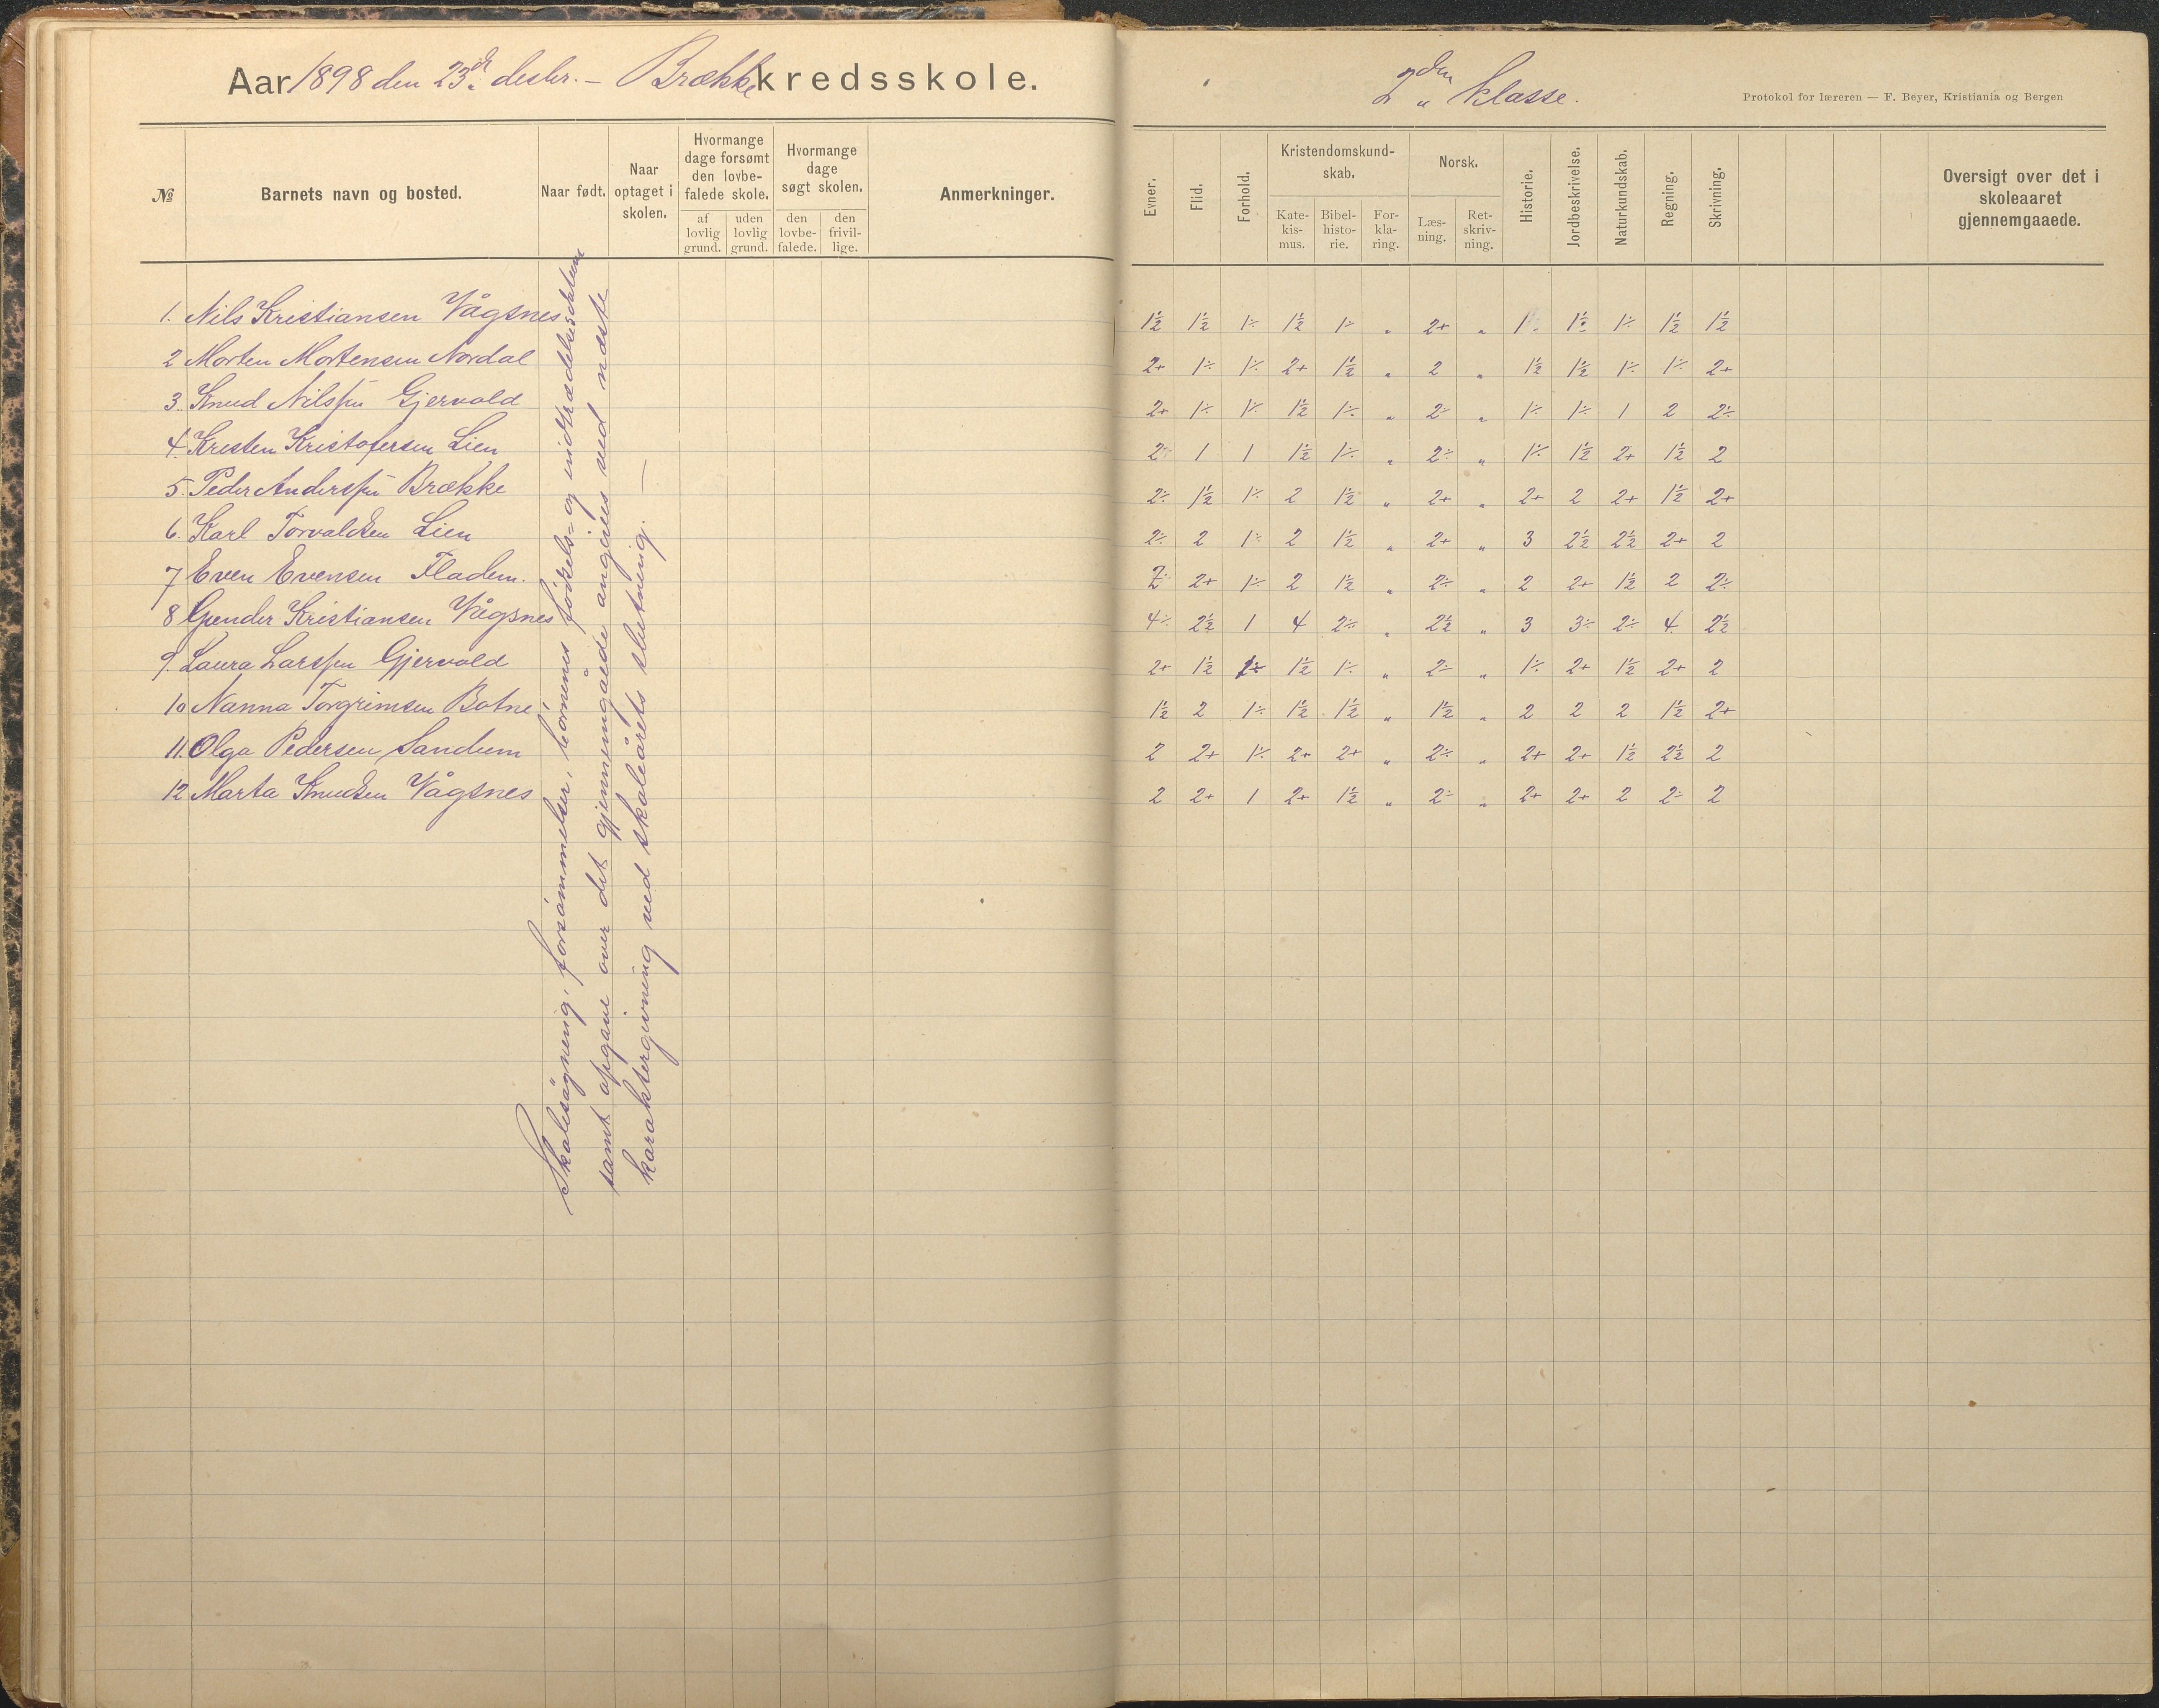 Aar 1898 den 23de desbr. – Brække kredsskole.
2den klasse.
Protokol for læreren — F. Beyer, Kristiania og Bergen
№ Barnets navn og bosted. Naar født. Naar optaget i skolen. Hvormange dage forsømt den lovbe- falede skole. af lovlig grund. uden lovlig grund. Hvormange dage søgt skolen. den lovbe- falede. den frivil- lige. Anmerkninger.
Evner. Flid. Forhold. Kristendomskund- skab. Kate- kis- mus. Bibel- histo- rie. For- kla- ring. Norsk. Læs- ning. Ret- skriv- ning. Historie. Jordbeskrivelse. Naturkundskab. Regning. Skrivning. Oversigt over det i skoleaaret gjennemgaaede.
1. Nils Kristiansen Vågsnes 1½ 1½ 1÷ 1½ 1÷ „ 2+ „ 1÷ 1½ 1÷ 1½ 1½
2 Morten Mortensen Nordal 2+ 1÷ 1÷ 2+ 1½ „ 2 „ 1½ 1½ 1÷ 1÷ 2+
3. Knud Nilssen Gjervold 2+ 1÷ 1÷ 1½ 1÷ „ 2÷ „ 1÷ 1÷ 1 2 2÷
4. Kresten Kristofersen Lien 2÷ 1 1 1½ 1÷ „ 2÷ „ 1÷ 1½ 2+ 1½ 2
5. Peder Anderssen Brække 2÷ 1½ 1÷ 2 1½ „ 2+ „ 2+ 2 2+ 1½ 2+
6. Karl Torvaldsen Lien 2÷ 2 1÷ 2 1½ „ 2+ „ 3 2½ 2½ 2+ 2
7 Even Evensen Fladem. 2÷ 2+ 1÷ 2 1½ „ 2÷ „ 2 2+ 1½ 2 2÷
8 Gunder Kristiansen Vågsnes 4÷ 2½ 1 4 2÷ „ 2½ „ 3 3÷ 2÷ 4 2½
9. Laura Larssen Gjervold 2+ 1½ 1÷ 1½ 1÷ „ 2÷ „ 1÷ 2+ 1½ 2+ 2
10 Nanna Torgrimsen Botne 1½ 2 1÷ 1½ 1½ „ 1½ „ 2 2 2 1½ 2+
11. Olga Pedersen Sandum 2 2+ 1÷ 2+ 2+ „ 2÷ „ 2+ 2+ 1½ 2½ 2
12 Marta Knudsen Vågsnes 2 2+ 1 2+ 1½ „ 2÷ „ 2+ 2+ 2 2÷ 2
Skolesøgning, forsømmelser, børnenes fødsels- og indtrædelsesdatum
samt opgave over det gjennemgåede angives ved næste
karaktergivning ved skoleårets slutning. —